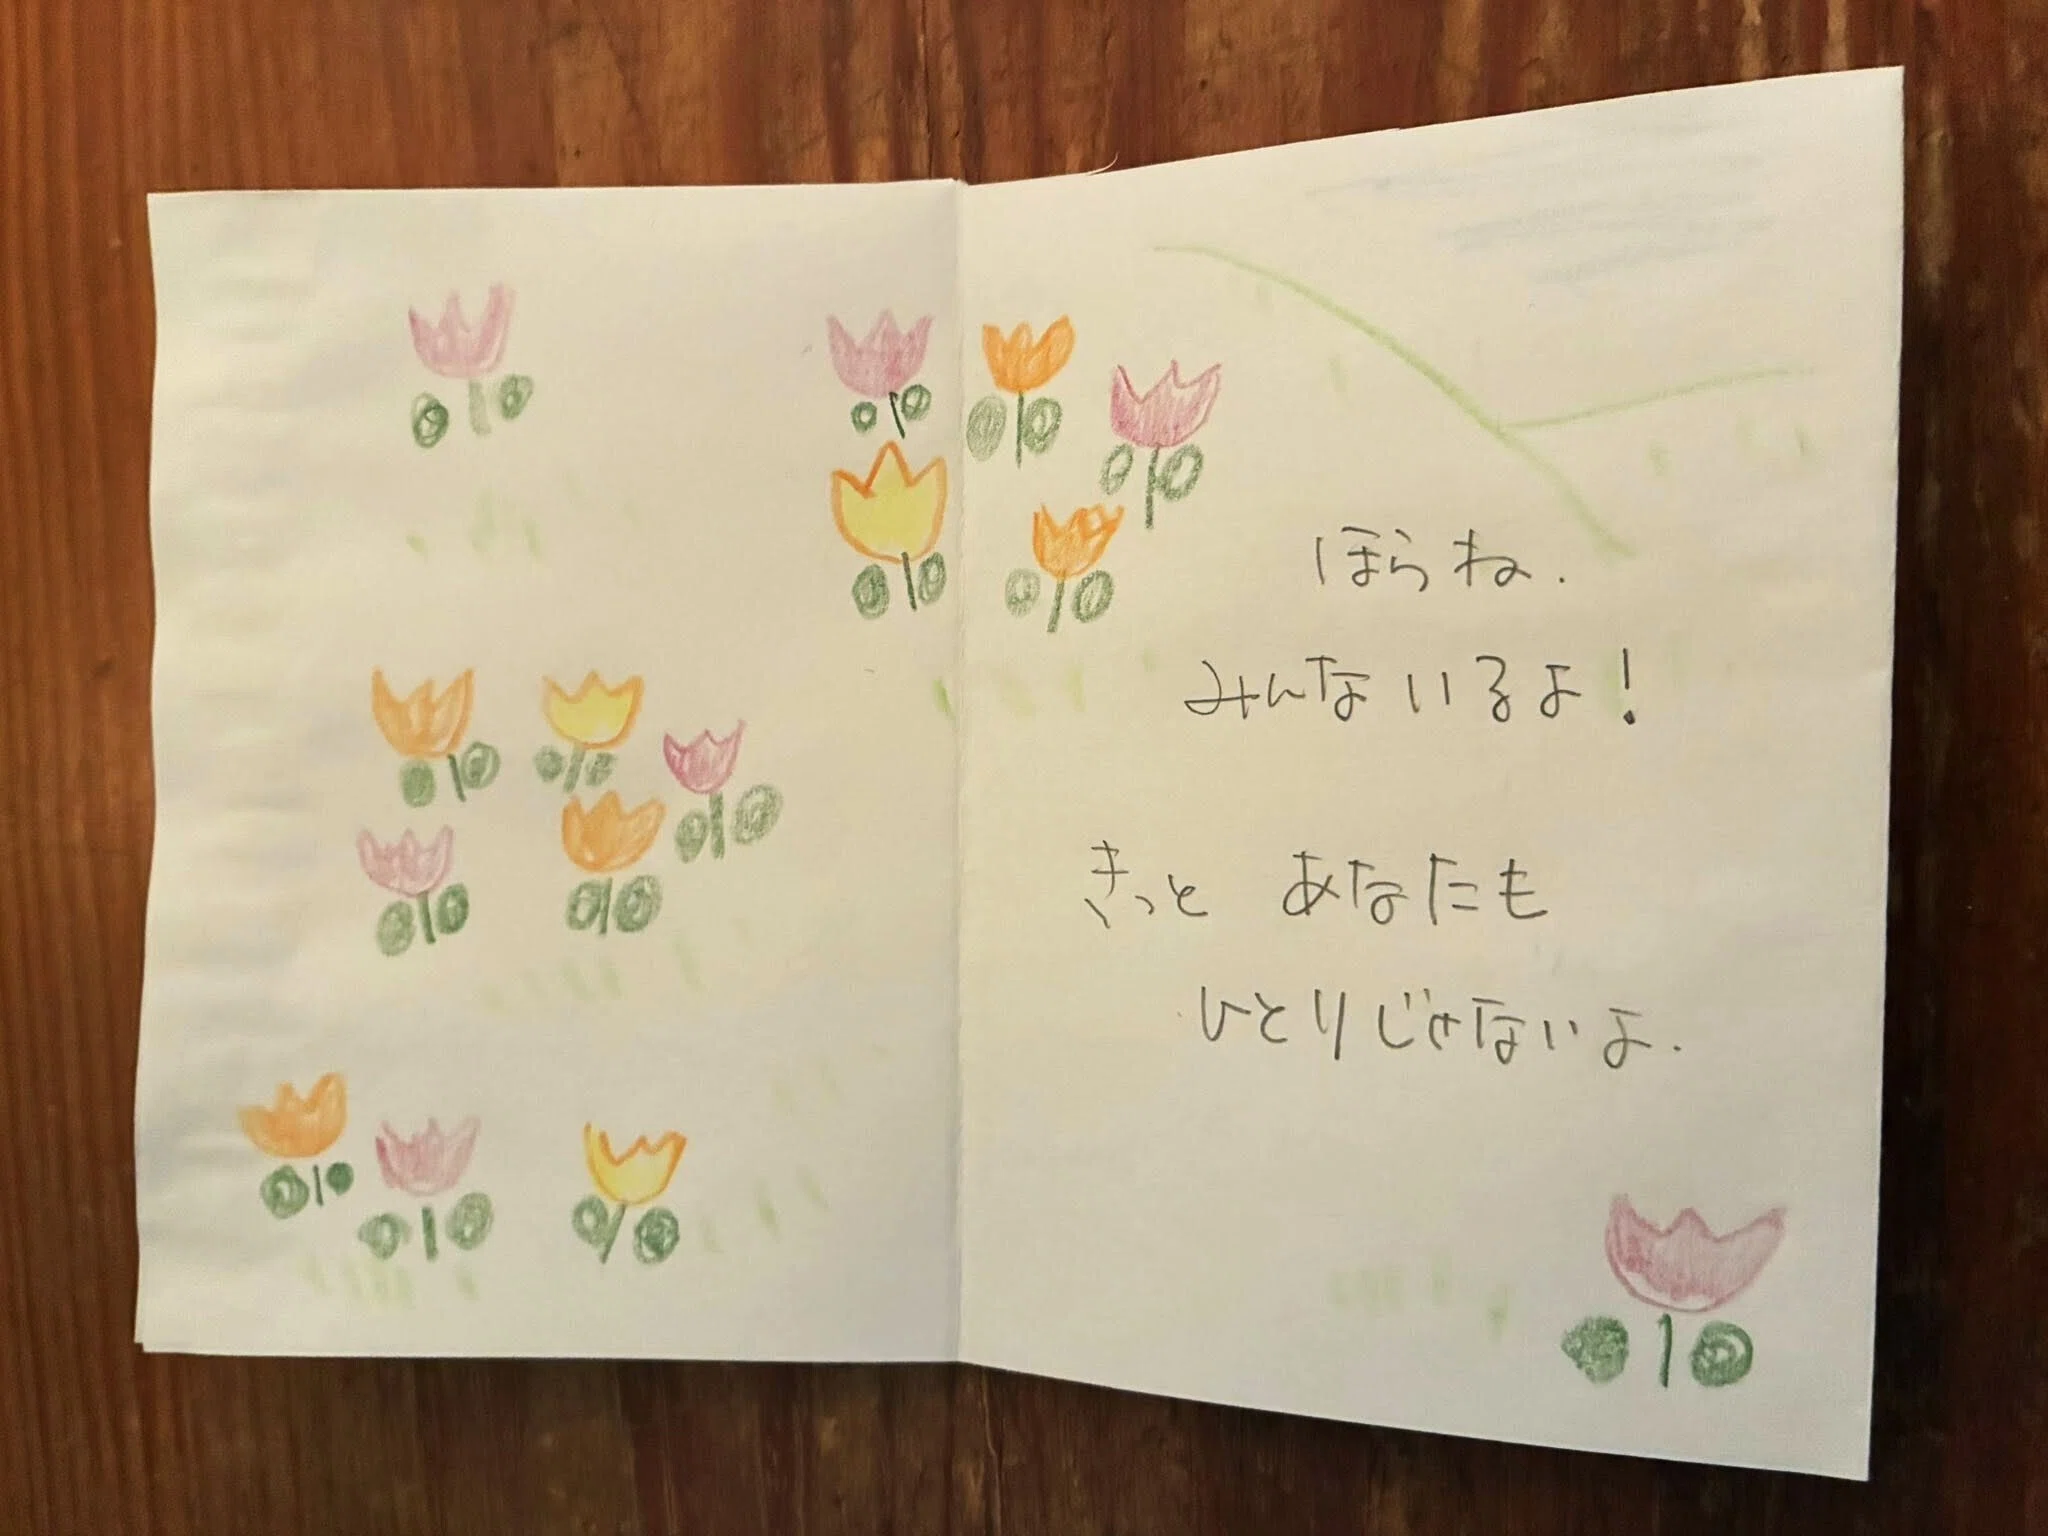 ほらね.
みんないるよ!
きっと あなたも
ひとりじゃないよ.